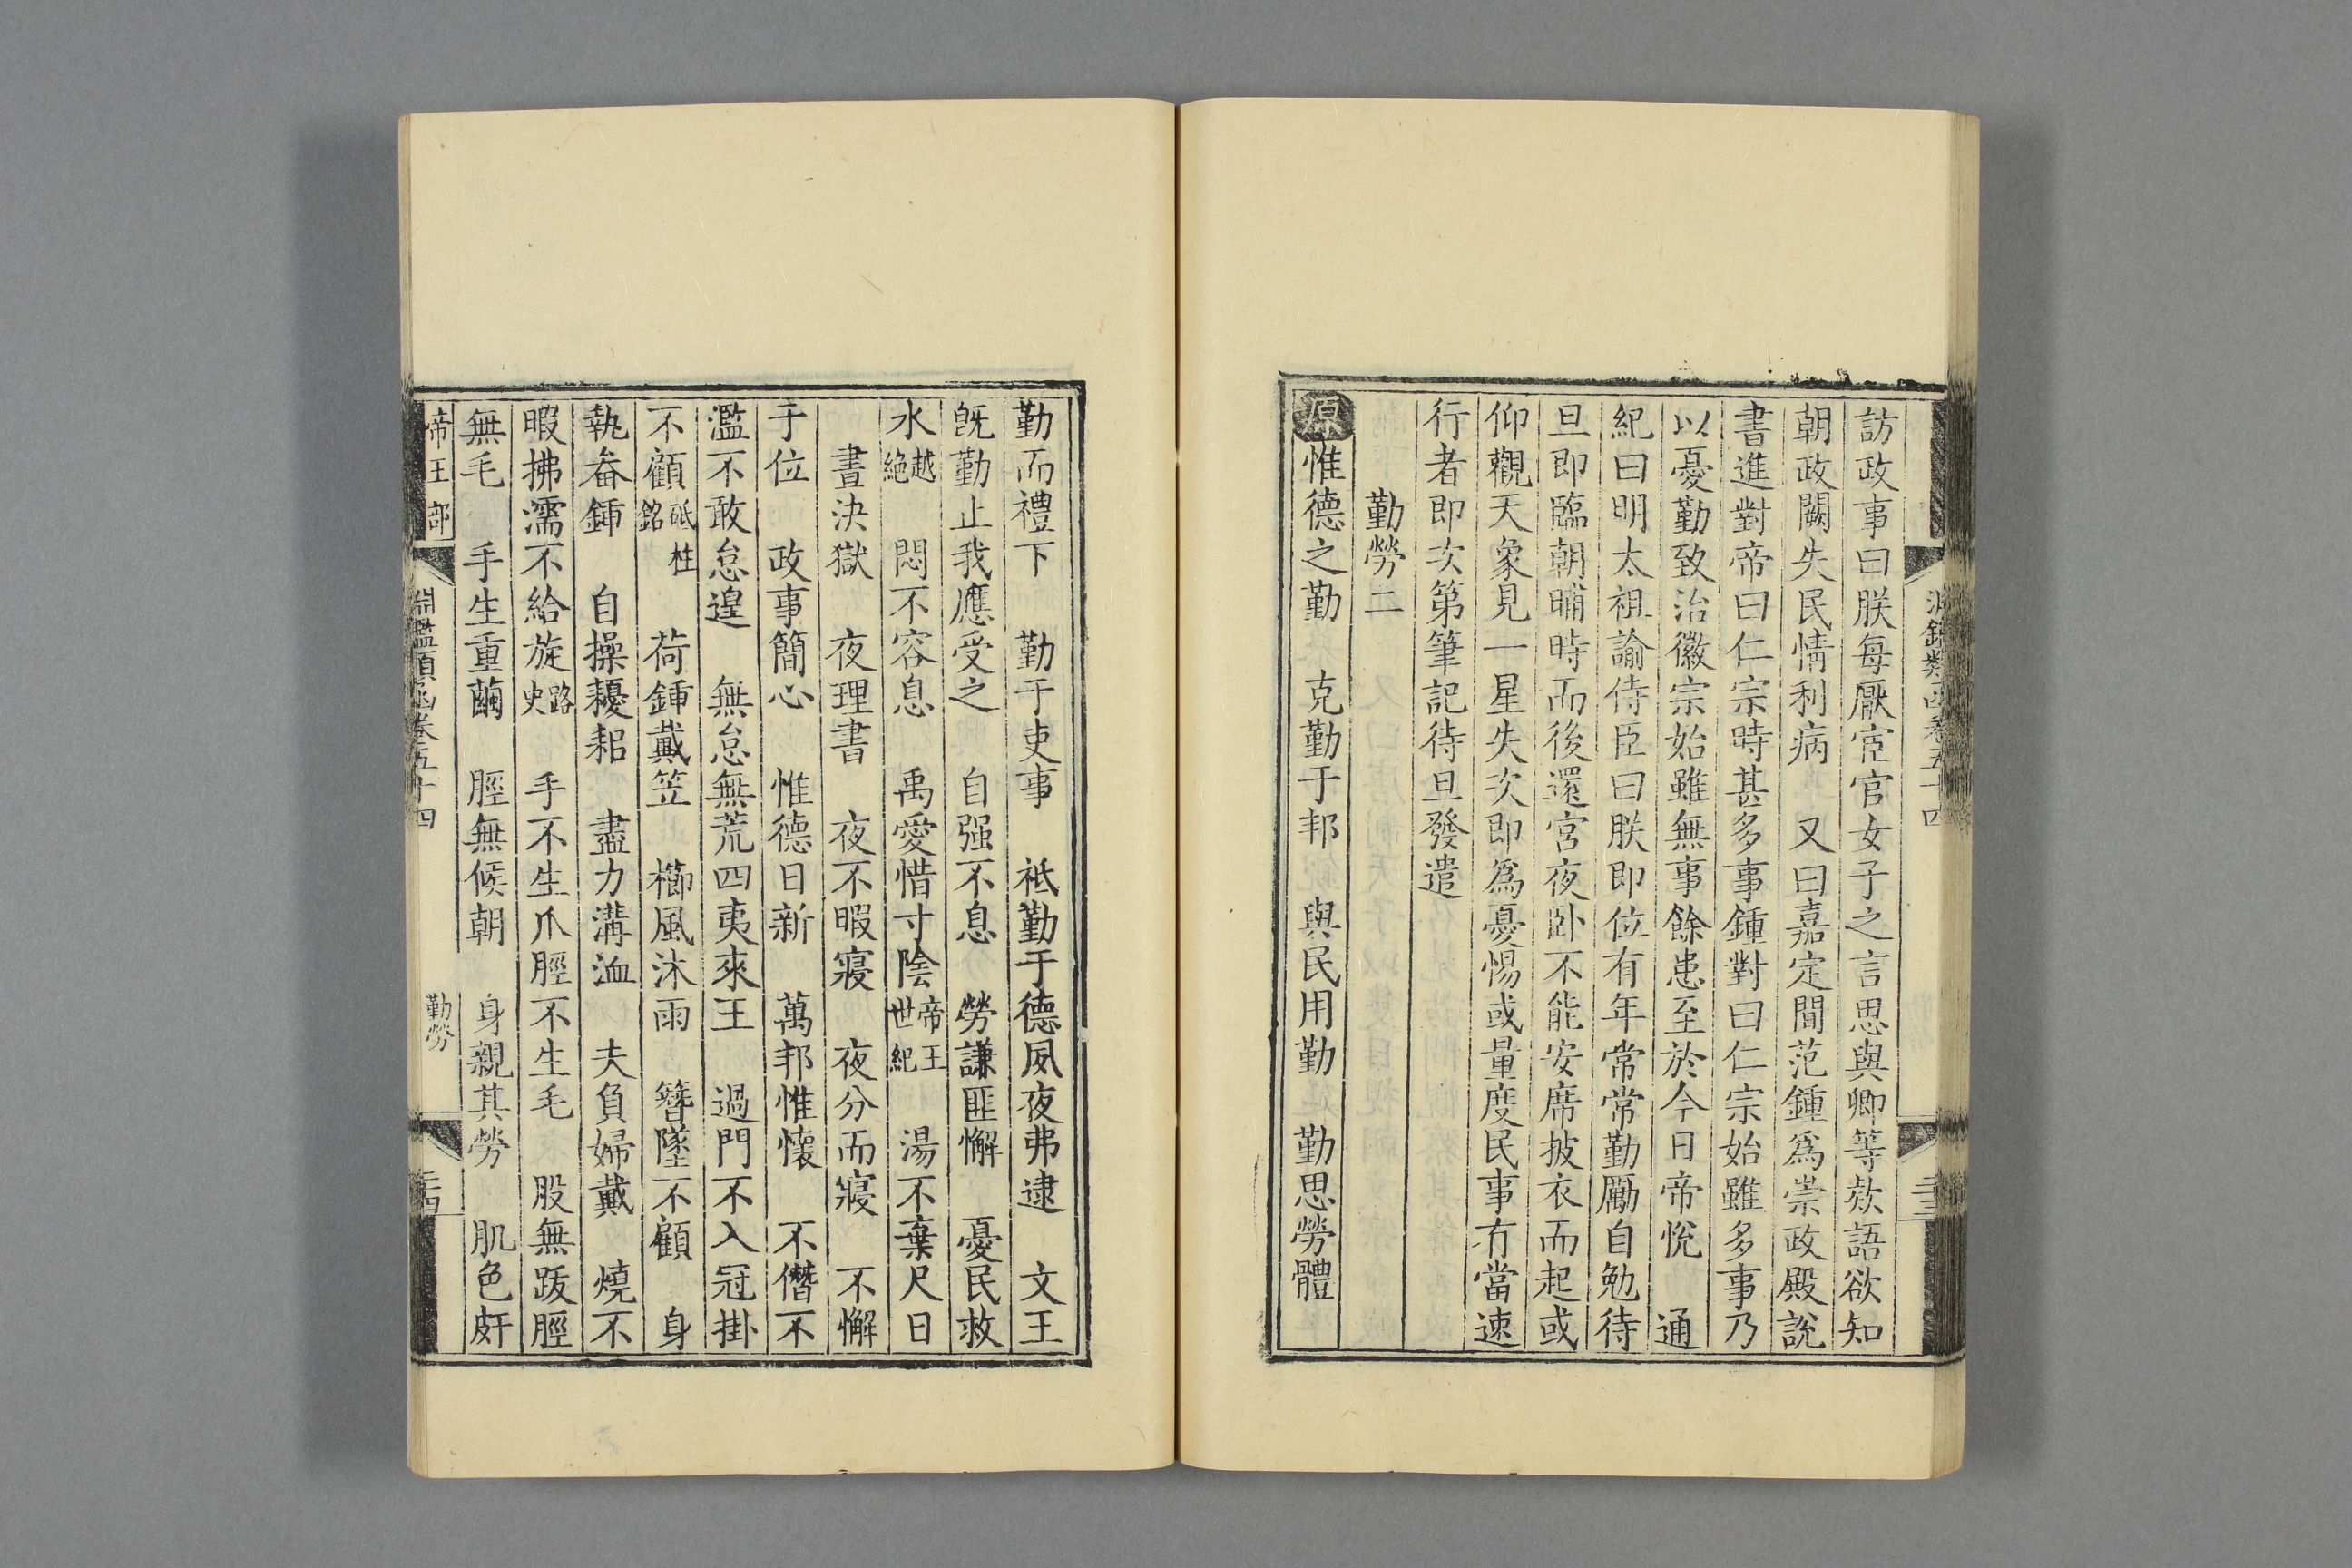 訪政事曰朕每厭宦官女子之言思與卿等欵語欲知
朝政闕失民情利病　又曰嘉定間范鍾爲崇政殿說
書進對帝曰仁宗時甚多事鍾對曰仁宗始雖多事乃
以憂勤致治徽宗始雖無事餘患至於今日帝悅　通
紀曰明太祖諭侍臣曰朕即位有年常常勤勵自勉待
旦即臨朝晡時而後還宮夜卧不能安席披衣而起或
仰觀天象見一星失次即爲憂惕或量度民事有當速
行者即次第筆記待旦發遣
勤勞二
原惟德之勤　克勤于邦　與民用勤　勤思勞體
勤而禮下　勤于吏事　祗勤于德夙夜弗逮　文王
旣勤止我應受之　自强不息　勞謙匪懈　憂民救
水越絕　悶不容息　禹愛惜寸陰帝王世紀　湯不棄尺日
晝決獄　夜理書　夜不暇寢　夜分而寢　不懈
于位　政事簡心　惟德日新　萬邦惟懷　不僭不
濫不敢怠遑　無怠無荒四夷來王　過門不入冠掛
不顧砥柱銘　荷鍤戴笠　櫛風沐雨　簪墜不顧　身
執畚鍤　自操耰耜　盡力溝洫　夫負婦戴　燒不
暇拂濡不給旋路史　手不生爪脛不生毛　股無跋脛
無毛　手生重繭　脛無候朝　身親其勞　肌色皯
帝王部　淵鑑類函卷五十四　勤勞　二十四